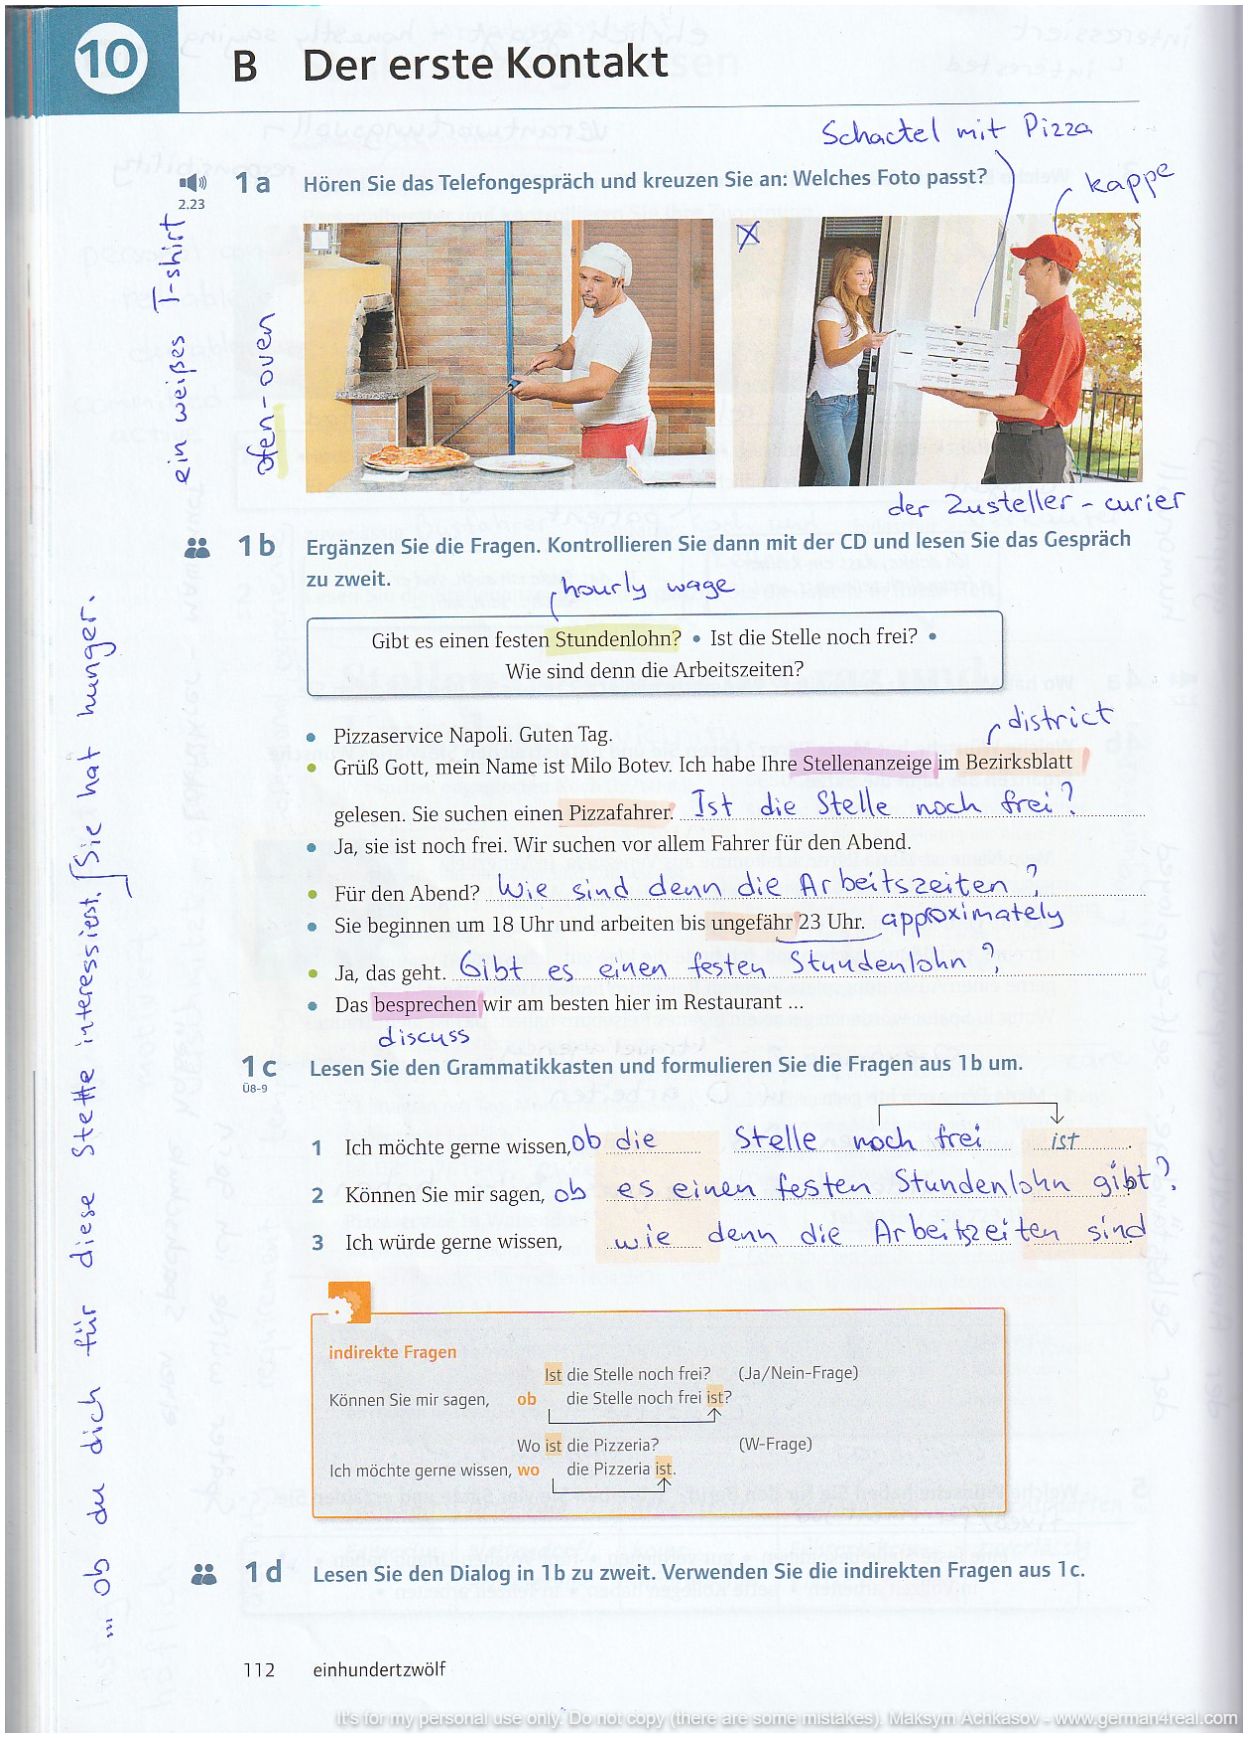 10
B Der erste Kontakt
Schactel mit Pizza
kappe
2.23
1a Hören Sie das Telefongespräch und kreuzen Sie an: Welches Foto passt?
ein weißes T-shirt
ofen - oven
der Zusteller - curier
1b Ergänzen Sie die Fragen. Kontrollieren Sie dann mit der CD und lesen Sie das Gespräch
zu zweit.
hourly wage
Gibt es einen festen Stundenlohn? • Ist die Stelle noch frei? •
Wie sind denn die Arbeitszeiten?
district
• Pizzaservice Napoli. Guten Tag.
• Grüß Gott, mein Name ist Milo Botev. Ich habe Ihre Stellenanzeige im Bezirksblatt
gelesen. Sie suchen einen Pizzafahrer. Ist die Stelle noch frei?
• Ja, sie ist noch frei. Wir suchen vor allem Fahrer für den Abend.
• Für den Abend? Wie sind denn die Arbeitszeiten?
• Sie beginnen um 18 Uhr und arbeiten bis ungefähr 23 Uhr. approximately
• Ja, das geht. Gibt es einen festen Stundenlohn?
• Das besprechen wir am besten hier im Restaurant ...
discuss
1c Lesen Sie den Grammatikkasten und formulieren Sie die Fragen aus 1b um.
Ü8-9
1 Ich möchte gerne wissen, ob die Stelle noch frei ist.
2 Können Sie mir sagen, ob es einen festen Stundenlohn gibt?
3 Ich würde gerne wissen, wie denn die Arbeitszeiten sind
indirekte Fragen
Ist die Stelle noch frei? (Ja/Nein-Frage)
Können Sie mir sagen, ob die Stelle noch frei ist?
Wo ist die Pizzeria? (W-Frage)
Ich möchte gerne wissen, wo die Pizzeria ist.
1d Lesen Sie den Dialog in 1b zu zweit. Verwenden Sie die indirekten Fragen aus 1c.
... ob du dich für diese Stelle interessierst. Sie hat hunger.
112 einhundertzwölf
It's for my personal use only. Do not copy (there are some mistakes). Maksym Achkasov - www.german4real.com